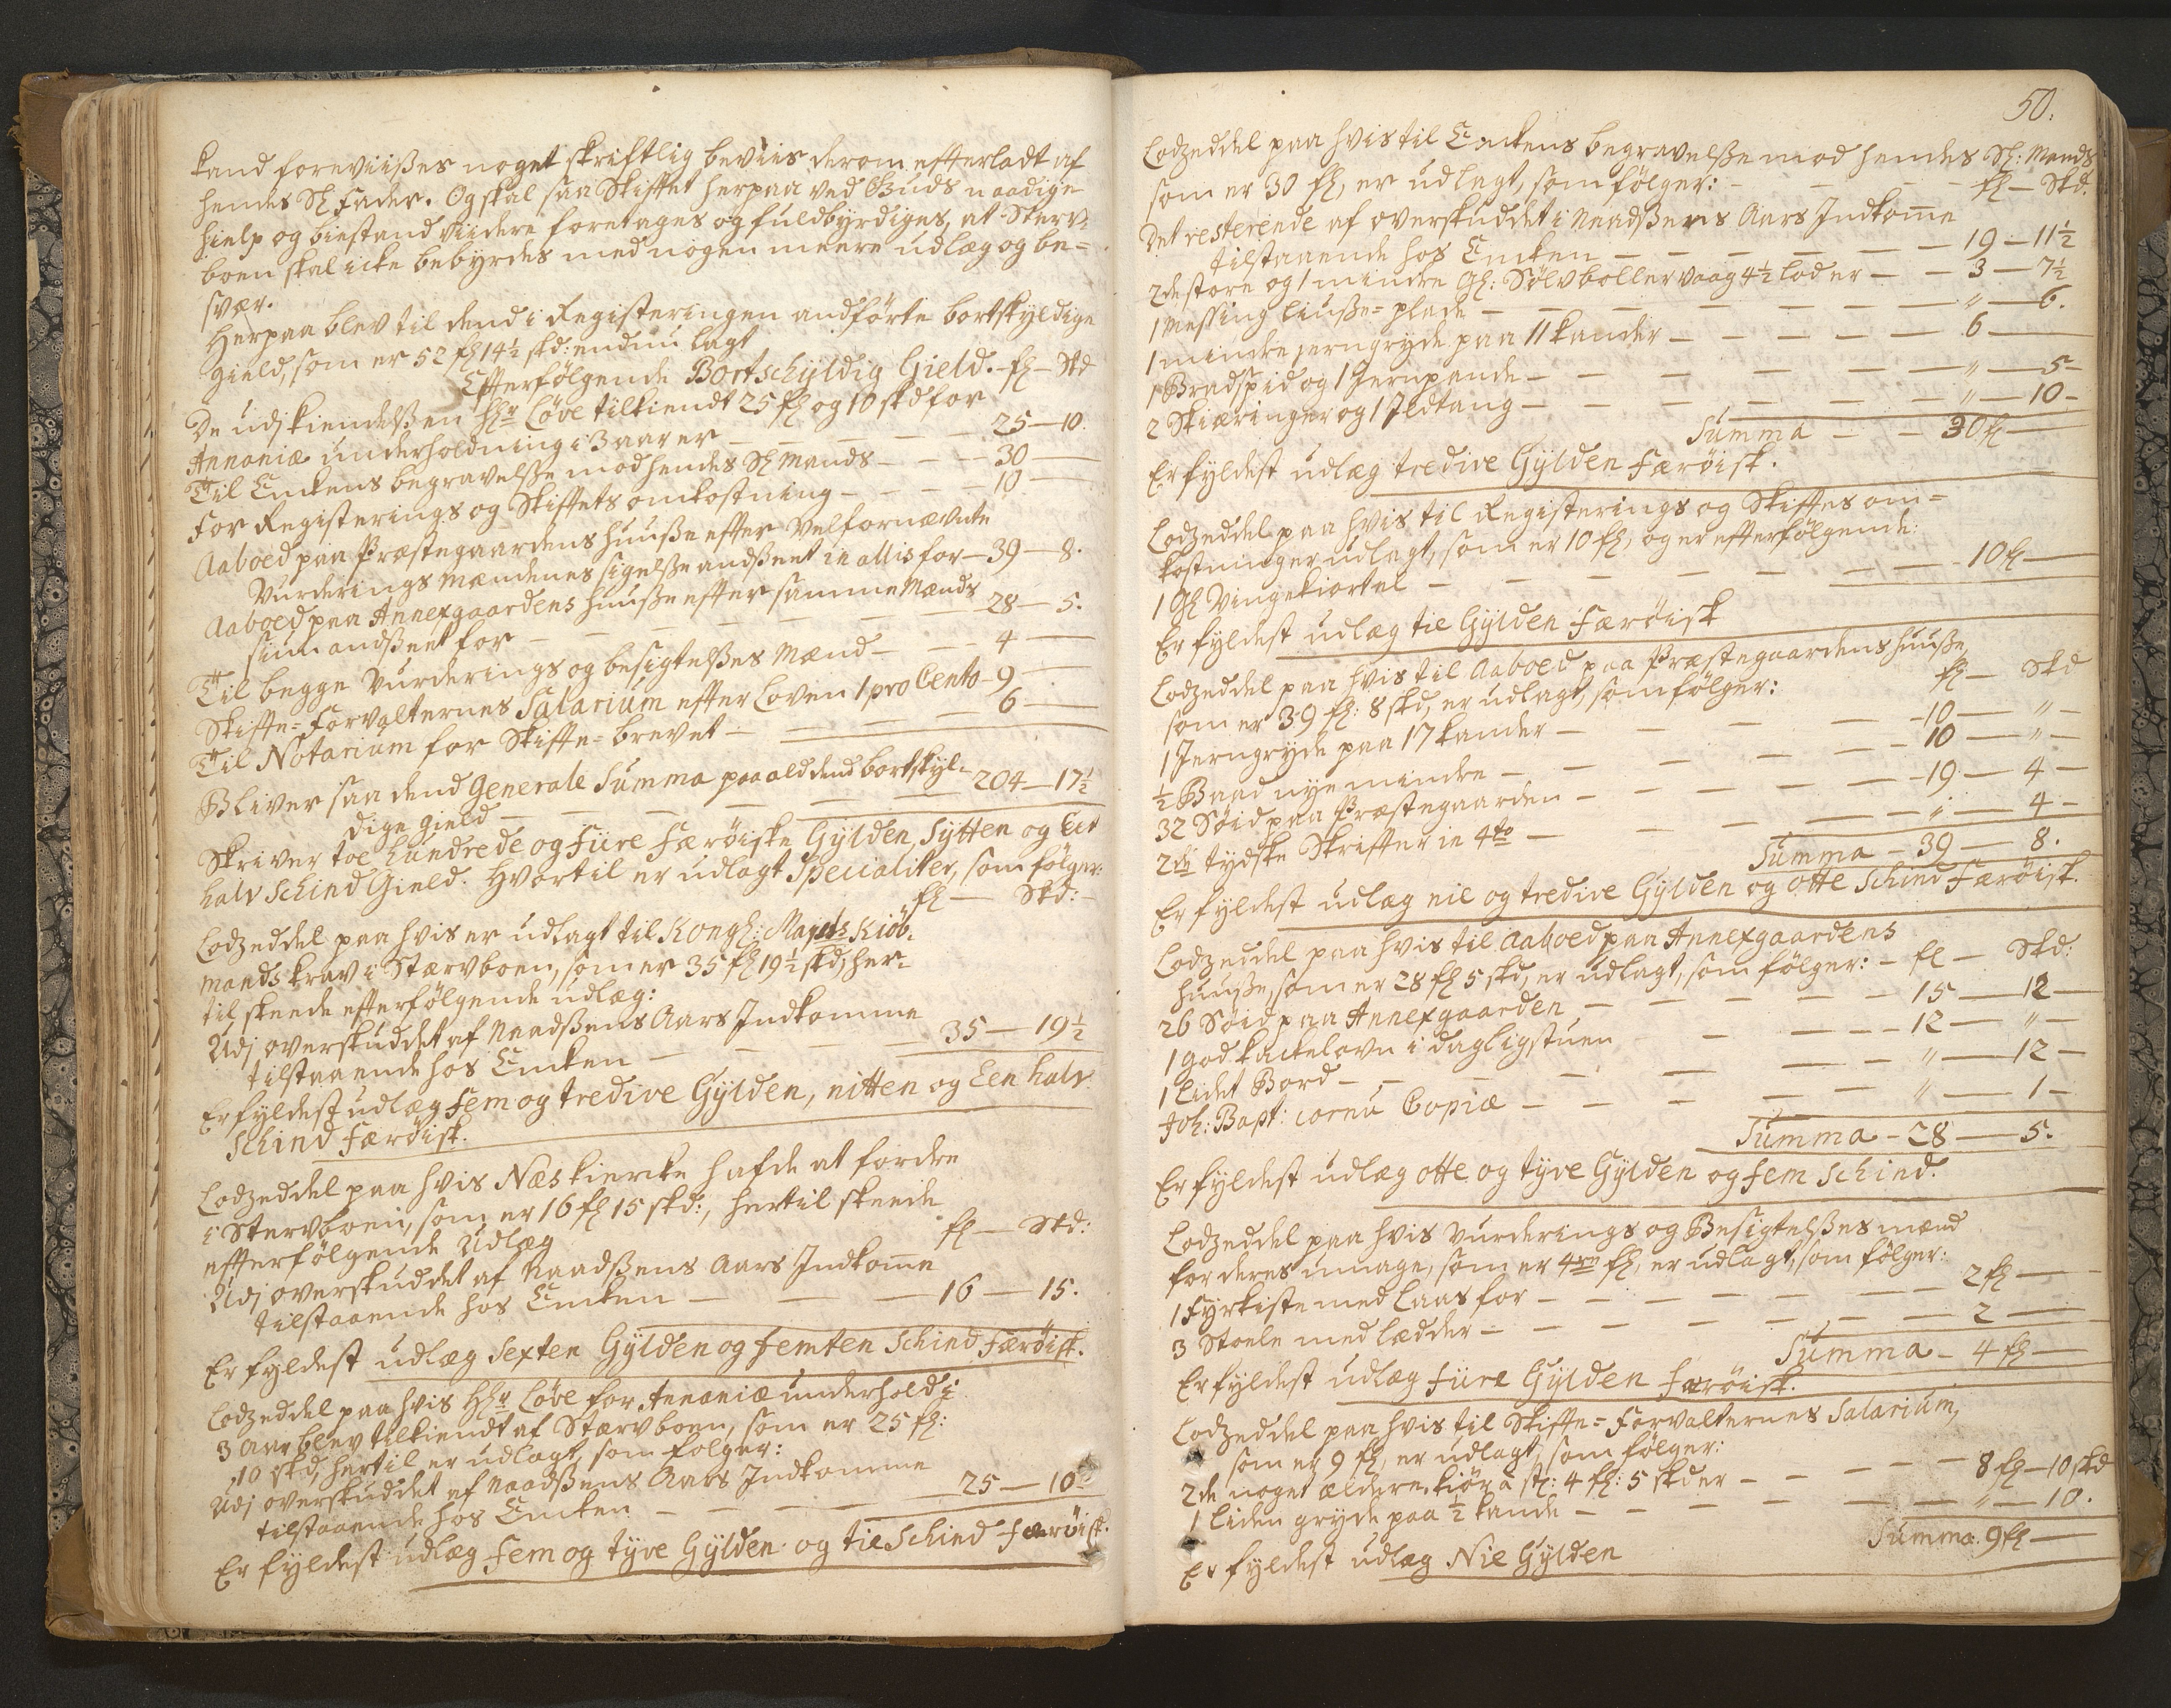 kand foreviißes noget skriftlig beviis derom effterladt af
hendes Sl Fader. Og skal saa Skifftet herpaa ved Guds naadige
hielp og biestand viidere foretages og fuldbyrdiges, at Sterv-
boen skal icke bebyrdes med nogen meere udlæg og be-
svær.
Herpaa blev til dend i Registeringen andförte bortskyldige
Gield, som er 52 fl 14½ skd: endnu lagt
Effterfølgende Bortschÿldig Gield. - fl - Skd
De udj kiendelßen Hr Löve tilkiendt 25 fl og 10 skd for
Annaniæ underholdning i 3 aar er — 25 — 10.
Til Enckens begravelße mod hendes Sl Mands — 30 —
For Registerings og Skifftets omkostning — 10 —
Aaboed paa Præstegaardens huuße effter Velfornævnte
Vurderings Mændenes sigelße andßeet in allis for — 39 — 8.
Aaboed paa Annexgaardens huuße effter samme Mænds
siun andßeet for — 28 — 5.
Til begge Vurderings og besigtelßes Mænd — 4 —
Skiffte-Forvalternes Salarium effter Loven 1 pro Cento — 9 —
Til Notarium for Skiffte-brevet — 6 —
Bliver saa dend Generale Summa paa ald dend bortskyl-
dige gield — 204 — 17½
Skriver toe hundrede og Fiire Færöiske Gÿlden, Sÿtten og Eet
halv Schind Gield. Hvortil er udlagt Specialiter, som følger:
fl — Skd:
Lodzeddel paa hvis er udlagt til Kongl: Majsts Kiöb-
mands krav i Stærvboen, som er 35 fl 19½ skd, her-
til skeede effterfølgende udlæg:
Udj overskuddet af Naadßens Aars Indkomme
tilstaaende hos Encken — 35 — 19½
Er fyldest udlæg Fem og tredive Gÿlden, nitten og Een halv
Schind Færöisk.
Lodzeddel paa hvis Næs kiercke hafde at fordre
i Stervboen, som er 16 fl 15 skd:, hertil skeede
effterfølgende Udlæg — fl — Skd:
Udj overskuddet af Naadßens Aars Indkom̅e
tilstaaende hos Encken — 16 — 15.
Er fyldest udlæg Sexten Gÿlden og femten Schind Færöisk.
Lodzeddel paa hvis Hr Löve for Annaniæ underhold i
3 Aar blev tilkiendt af Stærvboen, som er 25 fl:
10 skd, hertil er udlagt, som følger:
Udj overskuddet af Naadßens Aars Indkomme
tilstaaende hos Encken — 25 — 10
Er fyldest udlæg Fem og tÿve Gÿlden og tie Schind Færöisk.
50.
Lodzeddel paa hvis til Enckens begravelße mod hendes Sl: Mands
som er 30 fl, er udlagt, som følger: — fl — Skd.
Det resterende af overskuddet i Naadßens Aars Indkom̅e
tilstaaende hos Encken — 19 — 11½
2de store og 1 mindre Gl: Sølvboller vaag 4½ lod er — 3 — 7½
1 Messing liuße-plade — " — 6.
1 mindre jerngryde paa 11 kander — 6 —
1 Bradspid og 1 Jernpande — " — 5 -
2 Skiæringer og 1 Ildtang — " — 10 -
Summa — 30 fl —
Er fyldest udlæg tredive Gÿlden Færöisk.
Lodzeddel paa hvis til Registerings og Skifftes om-
kostninger udlagt, som er 10 fl, og er effterfølgende:
1 Gl Vingekiortel — 10 fl —
Er fyldest udlæg tie Gÿlden Færöisk
Lodzeddel paa hvis til Aaboed paa Præstegaardens huuße,
som er 39 fl: 8 skd, er udlagt, som følger: fl — Skd
1 Jerngryde paa 17 kander — 10 — "
½ Baad nye mindre — 10 — "
32 Søid paa Præstegaarden — 19 — 4 -
2de tydske Skriffter in 4to — " — 4 -
Summa — 39 — 8.
Er fyldest udlæg nie og tredive Gÿlden og otte Schind Færöisk.
Lodzeddel paa hvis til Aaboed paa Annexgaardens
huuße, som er 28 fl 5 skd, er udlagt, som følger: — fl — Skd:
26 Søid paa Annexgaarden — 15 — 12 -
1 god kackelovn i dagligstuen — 12 — "
1 lidet Bord — " — 12 -
Joh: Bapt: cornu Copiæ — " — 1 -
Summa — 28 — 5.
Er fyldest udlæg otte og tÿve Gÿlden og fem Schind.
Lodzeddel paa hvis Vurderings og Besigtelßes mænd
for deres umage, som er 4re fl, er udlagt, som følger:
1 Fyrkiste med Laas for — 2 fl —
3 Stoele med lædder — 2 —
Summa — 4 fl —
Er fyldest udlæg fiire Gÿlden Færöisk.
Lodzeddel paa hvis til Skiffte-Forvalternes Salarium,
som er 9 fl, er udlagt, som følger:
2de noget ældere kiör à st: 4 fl: 5 skd er — 8 fl — 10 skd
1 liden gryde paa ½ kande — " — 10.
Summa. 9 fl —
Er fyldest udlæg Nie Gÿlden